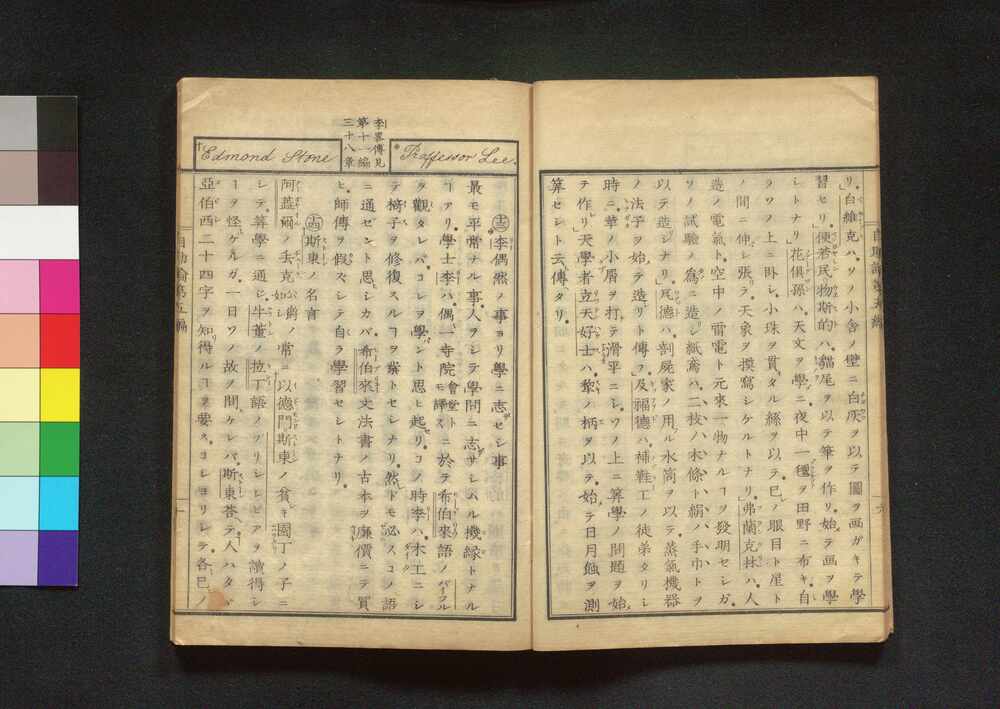 リ。白維克ハ。ソノ小舍ノ壁ニ白灰ヲ以テ圖ヲ画ガキテ學
習セリ。便若民物斯的ハ。貓尾ヲ以テ筆ヲ作リ。始テ画ヲ學
シトナリ」花俱孫ハ。天文ヲ學ニ。夜中一氊ヲ田野ニ布キ。自
ラソノ上ニ臥シ。小珠ヲ貫タル絲ヲ以テ。已ノ眼目ト星ト
ノ間ニ伸シ張ラ。天象ヲ摸寫シケルトナリ」弗蘭克林ハ。人
造ノ電氣ト。空中ノ雷電ト元來一物ナルヿヲ發明セシガ。
ソノ試驗ノ爲ニ造シ紙鳶ハ。二枝ハ木條ト絹ハ手巾トヲ
以テ造シナリ。瓦德ハ。剖屍家ノ用ル水筒ヲ以テ。蒸氣機器
ノ法子ヲ始テ造リト傳フ。及福德ハ。補鞋工ノ徒弟タリシ
時ニ。革ノ小屑ヲ打テ滑平ニシ。ソノ上ニ算學ノ問題ヲ始
テ作リ」天學者立天好士ハ。犂ノ柄ヲ以テ。始テ日月蝕ヲ測
算セシト云傳タリ。
李畧傳見
第十一編
三十八章
*Proffessor Lee.
†Edmond Stone
李偶然ノ事ヨリ學ニ志セシ事
最モ平常ナル事。人ヲシテ學問ニ志サシムル機縁トナル
ヿアリ。學士李ハ。偶一寺院會堂ト譯スニ於テ希伯來語ノバイブル
ヲ觀タレバ。コレヲ學ント思ヒ起セリ。コノ時李ハ。木工ニシ
テ椅子ヲ修復スルヿヲ業トセシナリ。然ドモ必スコノ語
ニ通ゼント思シカバ。希伯來文法書ノ古本ヲ廉價ニテ買
ヒ。師傳ヲ假スシテ自ラ學習セシトナリ。
斯東ノ名言
阿蓋爾ノ丢克公爵ノ如シ常ニ以德門斯東ノ貧キ園丁ノ子ニ
シテ。算學ニ通シ。牛董ノ拉丁語ノプリンシピアヲ讀得シ
ヿヲ怪ケルガ。一日ソノ故ヲ問ケレバ。斯東荅テ。人ハタヾ
亞伯西二十四字ヲ知得ルヿヲ要ス。コレヨリシテ。各已ノ